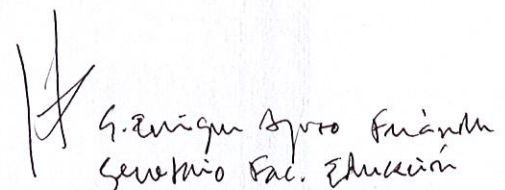 G. Enrique Ayuso Fernández
Secretario Fac. Educación